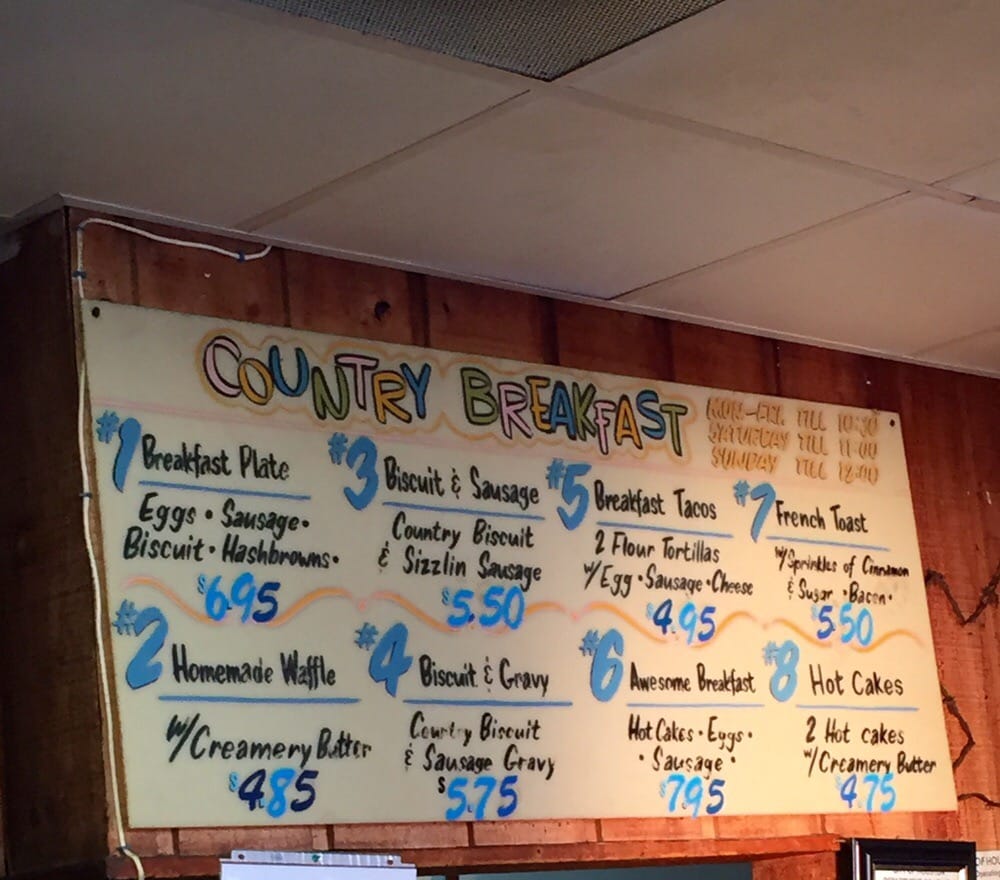 COUNTRY BREAKFAST
MON-FRI. TILL 10:30
SATURDAY TILL 11:00
SUNDAY TILL 12:00
#1 Breakfast Plate
Eggs • Sausage •
Biscuit • Hashbrowns •
$6.95
#2 Homemade Waffle
w/Creamery Butter
$4.85
#3 Biscuit & Sausage
Country Biscuit
& Sizzlin Sausage
$5.50
#4 Biscuit & Gravy
Country Biscuit
& Sausage Gravy
$5.75
#5 Breakfast Tacos
2 Flour Tortillas
w/Egg • Sausage • Cheese
$4.95
#6 Awesome Breakfast
Hot Cakes • Eggs •
• Sausage •
$7.95
#7 French Toast
w/Sprinkles of Cinnamon
& Sugar • Bacon •
$5.50
#8 Hot Cakes
2 Hot cakes
w/Creamery Butter
$4.75